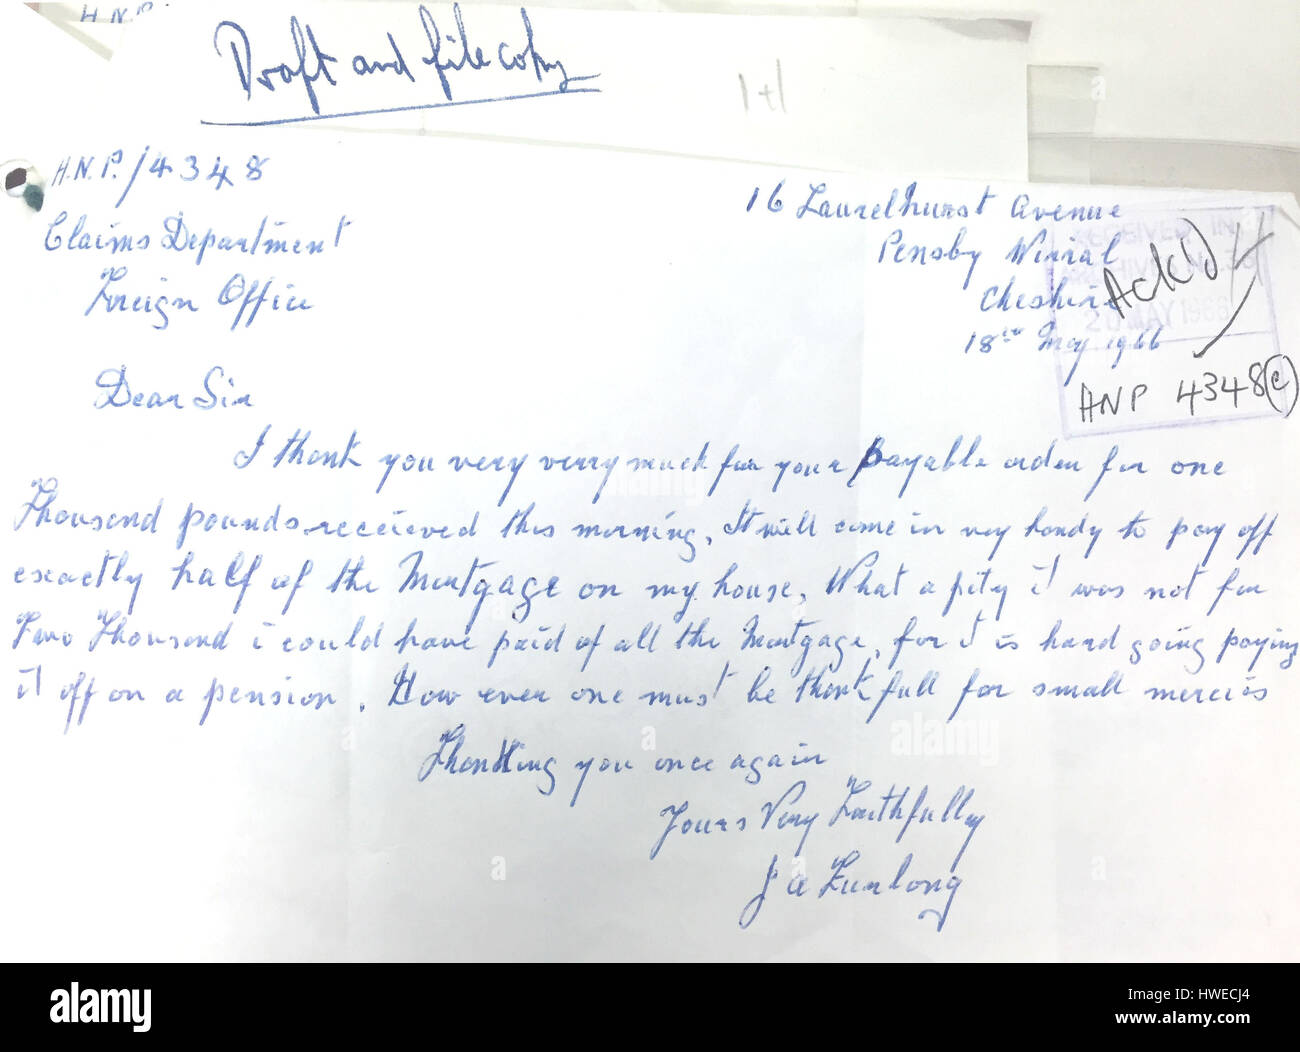 H.N.P.
Draft and file copy
1+1
H.N.P./4348
16 Laurelhurst Avenue
Claims Department
Pensby Wirral
Foreign Office
Cheshire
18th May 1966
RECEIVED IN
ARCHIVES No. 35
20 MAY 1966
Ack'd
HNP 4348(c)
Dear Sir
I thank you very verry much for your Payable order for one
Thousand pounds receieved this morning. It will come in very handy to pay off
exactly half of the Mortgage on my house. What a pity it was not for
Two Thousand i could have paid of all the Mortgage, for it is hard going paying
it off on a pension. How ever one must be thankfull for small mercies
Thanking you once again
Yours Very Faithfully
J A Furlong
alamy
alamy
alamy
Image ID: HWECJ4
www.alamy.com